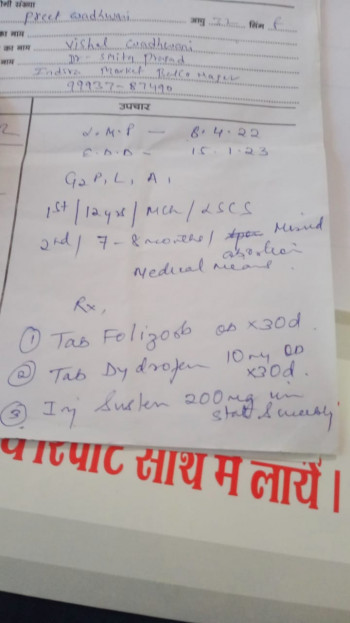 गी संख्या
Preet wadhwani आयु 32 लिंग F
का नाम
का नाम Vishal wadhwani
नाम Dr. Smita Prasad
Indira Market
99937-87490
उपचार
L.M.P — 8.4.22
E.D.D — 15.1.23
G2 P1 L1 A1
1st / 12 yrs / MCh / LSCS
2nd / 7-8 months / Missed
abortion
Medical Means.
Rx,
① Tab Folizoob OD x30d.
② Tab Dydrofem 10mg OD
x30d.
③ Inj Susten 200mg im
stat & weekly
रिपोर्ट साथ में लायें।